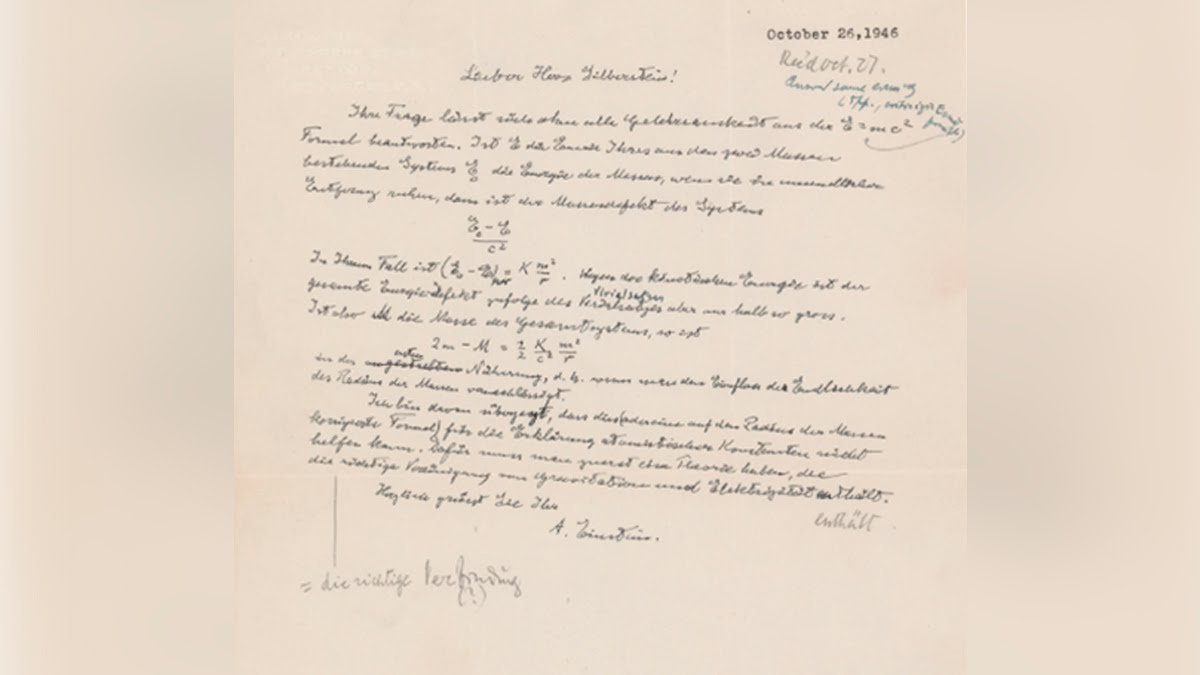 October 26, 1946
Rec'd Oct. 27.
Lieber Herr Silberstein!
Ihre Frage lässt sich ohne alle Gelehrsamkeit aus der E = mc²
Formel beantworten. Ist E die Energie Ihres aus den zwei Massen
bestehenden Systems E₀ die Energie der Massen, wenn sie in unendlicher
Entfernung ruhen, dann ist der Massendefekt des Systems
E₀ - E
c²
In Ihrem Fall ist (E₀ - E) = K m²/r. Wegen der kinetischen Energie ist der
Virialsatzes
gesamte Energiedefekt zufolge des aber nur halb so gross.
Ist also M die Masse des Gesamtsystems, so ist
2m - M = 1/2 K/c² m²/r
ersten
in der Näherung, d. h. wenn man den Einfluss der Endlichkeit
des Radius der Massen vernachlässigt.
Ich bin davon überzeugt, dass dies (oder eine auf den Radius der Massen
Formel) für die Erklärung atomistischer Konstanten nicht
helfen kann. Dafür muss man zuerst eine Theorie haben, die
die richtige Vereinigung von Gravitation und Elektrizität enthält.
enthält
Herzlich grüsst Sie Ihr
A. Einstein.
= die richtige Verbindung
(?)